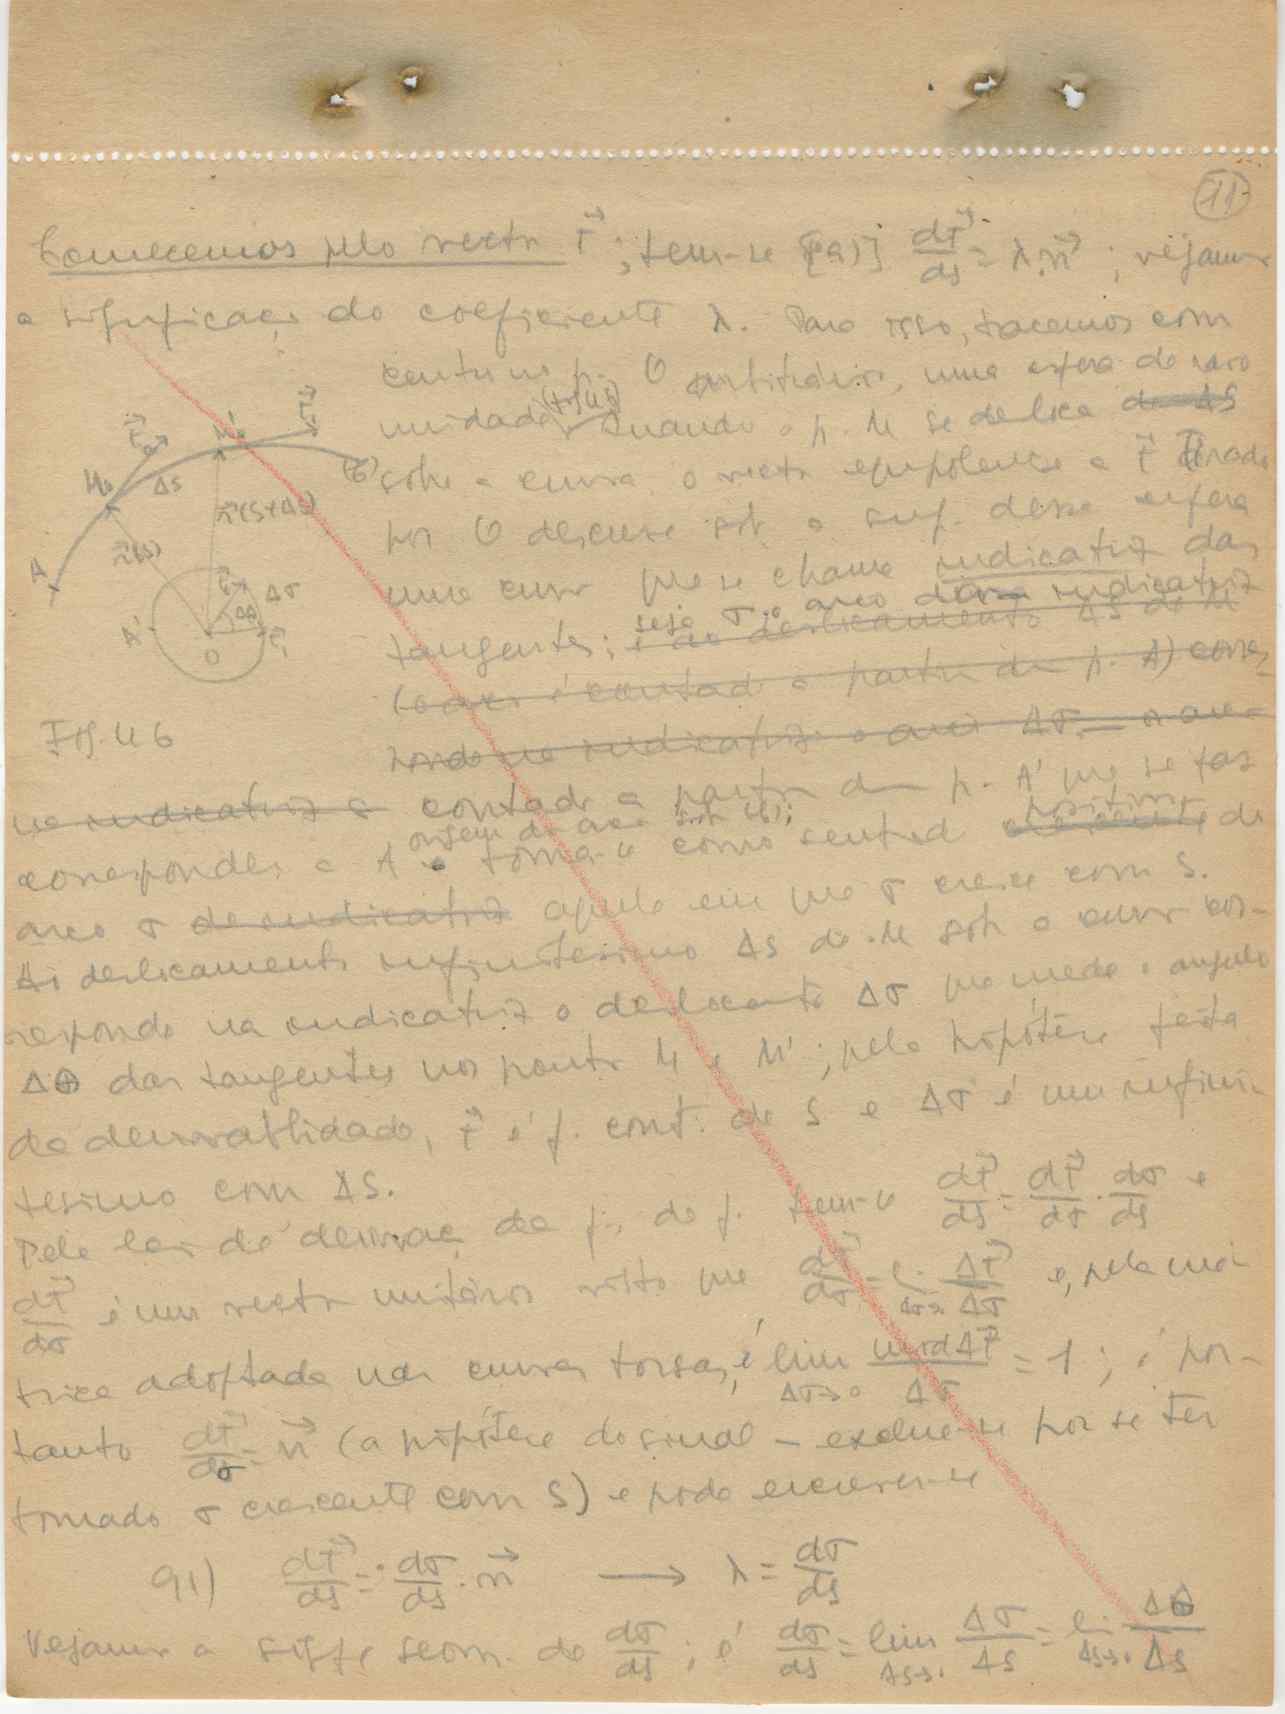 11
Comecemos pelo vector t⃗ ; tem-se [a)] dt⃗/ds = λ.n⃗ ; vejamos
a significaçao do coeficiente λ. Para isso, tracemos com
centro no p. O arbitrário, uma esfera de raio
unidade (Fig. 46). Quando o p. M se desloca de ΔS
sobre a curva o vector equipolente a t⃗ tirado
por O descreve sob. a sup. dessa esfera
uma curva que se chama indicatriz das
tangentes; seja σ o arco dessa indicatriz
e ao deslocamento ΔS de M
(o arco é contado a partir dum p. A) corres-
ponde na indicatriz o arco Δσ — o arco
na indicatriz é contado a partir dum p. A' que se faz
corresponder a A origem do arco sob. (C); e toma-se como sentido positivo do
arco σ da indicatriz aquele em que σ cresce com s.
Ao deslocamento infinitésimo ΔS de M sob. a curva cor-
responde na indicatriz o deslocamento Δσ que mede o angulo
Δθ das tangentes nos pontos M e M' ; pela hipótese feita
da derivabilidade, t⃗ é f. cont. de S e Δσ é um infini-
tésimo com ΔS.
Pela lei de derivaçao da f. de f. tem-se dt⃗/ds = dt⃗/dσ . dσ/ds e
dt⃗/dσ é um vector unitário visto que dt⃗/dσ = li. Δσ→0 Δt⃗/Δσ e, pela mé-
trica adoptada nas curvas torsas, é lim Δσ→0 mod Δt⃗/Δσ = 1 ; é por-
tanto dt⃗/dσ = n⃗ (a hipótese do sinal – exclue-se por se ter
tomado σ crescente com S) e pode escrever-se
91) dt⃗/ds = dσ/ds . n⃗ ⟶ λ = dσ/ds
Vejamos a sigf. geom. de dσ/ds ; é dσ/ds = lim ΔS→0 Δσ/ΔS = li. ΔS→0 Δθ/ΔS
t⃗₀
M'₀
t⃗
M₀
ΔS
(C)
r⃗(S+ΔS)
r⃗(S)
A
t⃗
Δσ
Δθ
A'
O
t⃗₁
Fig. 46